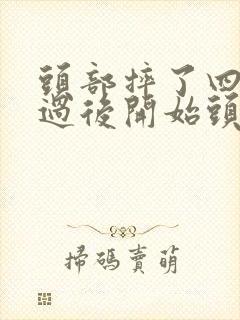 頭部摔了四
過後開始頭
掃碼賣萌